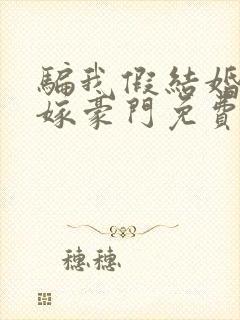 騙我假結婚
嫁豪門免費
穗穗